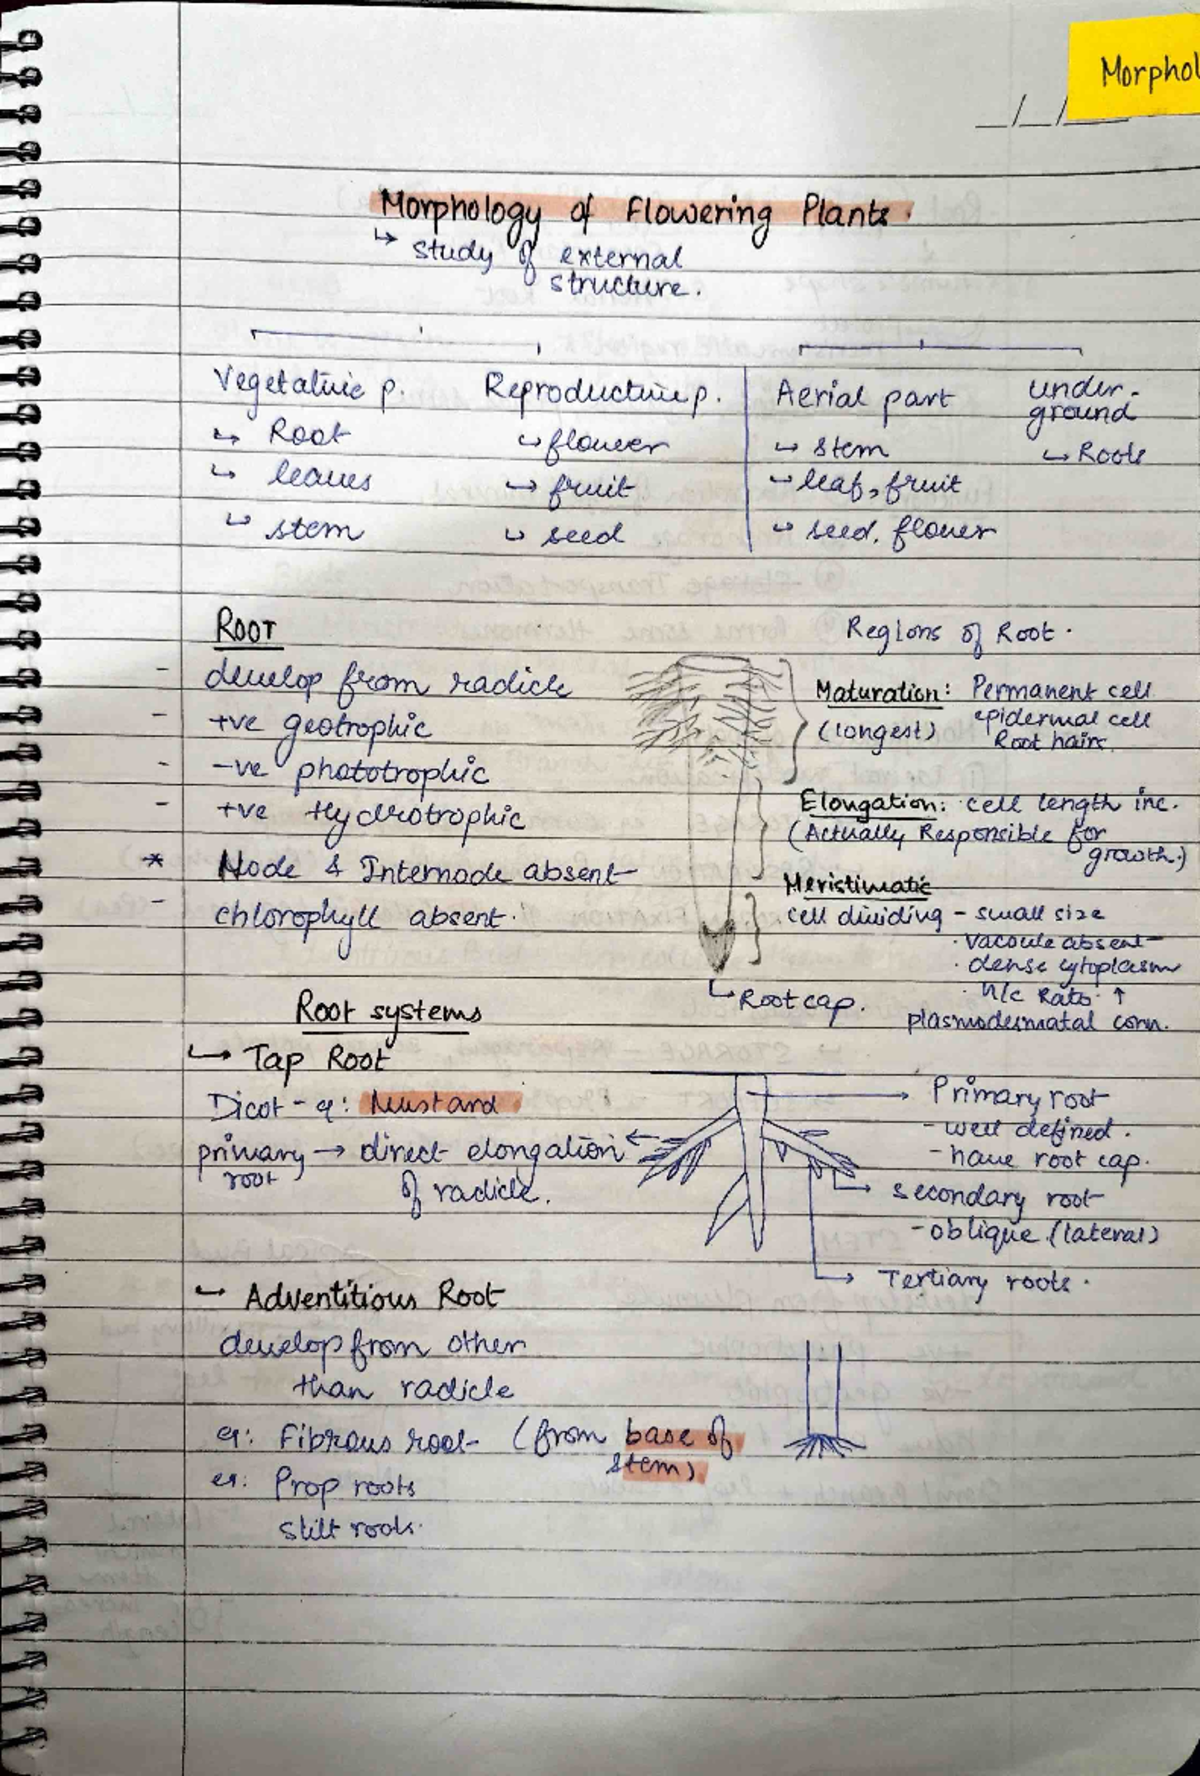 Morphol
_/_/
Morphology of Flowering Plants.
↳ study of external
structure.
Vegetative p.
↳ Root
↳ leaves
↳ stem
Reproductive p.
↳ flower
↳ fruit
↳ seed
Aerial part
↳ stem
↳ leaf, fruit
↳ seed, flower
under-
ground
↳ Roots
ROOT
- develop from radicle
- +ve geotrophic
- -ve phototrophic
- +ve Hydrotrophic
* Node & Internode absent
- chlorophyll absent.
Regions of Root.
Maturation: Permanent cell
(longest) epidermal cell
Root hairs.
Elongation: cell length inc.
(Actually Responsible for
growth.)
Meristimatic
cell dividing - small size
· vacoule absent
· dense cytoplasm
· N/c Rato ↑
plasmodesmatal conn.
↳ Root cap.
Root systems
↳ Tap Root
Dicot - eg: Mustard
primary → direct elongation
root of radicle.
Primary root
- well defined.
- have root cap.
secondary root
- oblique (lateral)
Tertiary roots.
↳ Adventitious Root
develop from other
than radicle
eg: Fibrous root (from base of
stem)
eg: Prop roots
stilt roots.